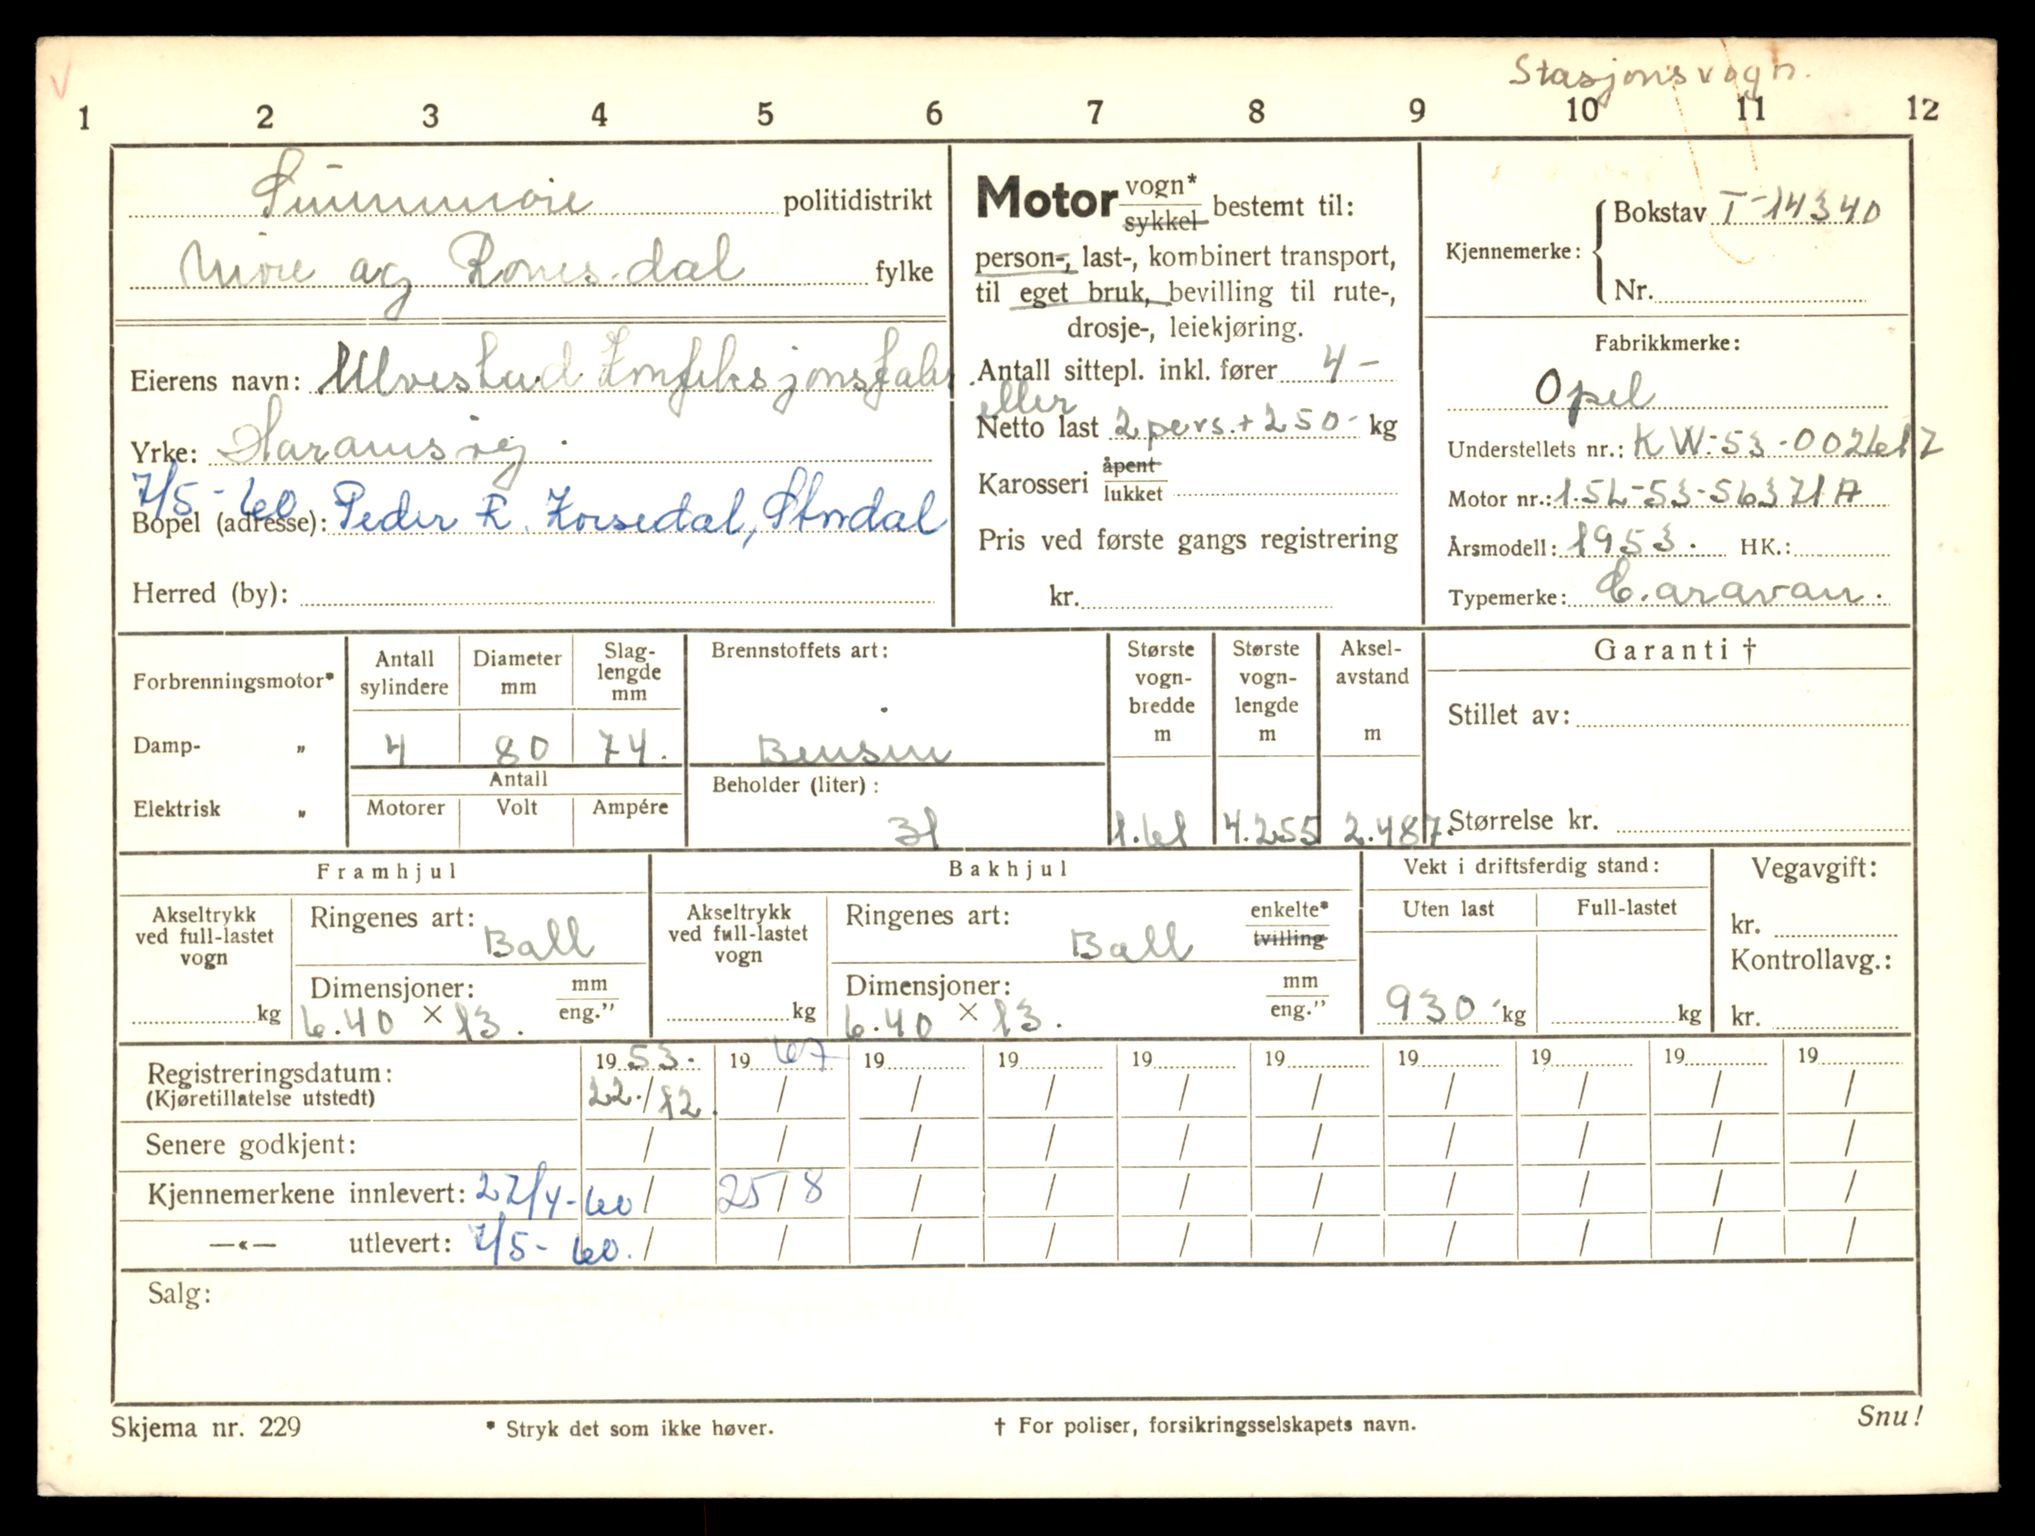 Stasjonsvogn.
1 2 3 4 5 6 7 8 9 10 11 12
Sunnmøre politidistrikt
Møre og Romsdal fylke
Eierens navn: Ulvestad Konfeksjonsfabr.
Yrke: Haramsøy.
7/5-60 Peder K. Korsedal, Stordal
Bopel (adresse):
Herred (by):
Motor vogn* sykkel bestemt til:
person-, last-, kombinert transport,
til eget bruk, bevilling til rute-,
drosje-, leiekjøring.
Antall sittepl. inkl. fører 4 -
eller
Netto last 2 pers. + 250- kg
Karosseri åpent lukket
Pris ved første gangs registrering
kr.
Kjennemerke: Bokstav T-14340
Nr.
Fabrikkmerke:
Opel
Understellets nr.: KW-53-002617
Motor nr.: 1.5L-53-56371A
Årsmodell: 1953. HK.:
Typemerke: Caravan.
Forbrenningsmotor*
Damp- „
Elektrisk „
Antall sylindere
Diameter mm
Slag-lengde mm
4 80 74.
Antall
Motorer Volt Ampére
Brennstoffets art:
Bensin
Beholder (liter):
31
Største vogn-bredde m
Største vogn-lengde m
Aksel-avstand m
1.61 4.255 2.487.
Garanti †
Stillet av:
Størrelse kr.
Framhjul
Akseltrykk ved full-lastet vogn
kg
Ringenes art: Ball
Dimensjoner: mm eng.”
6.40 × 13.
Bakhjul
Akseltrykk ved full-lastet vogn
kg
Ringenes art: enkelte* tvilling
Ball
Dimensjoner: mm eng.”
6.40 × 13.
Vekt i driftsferdig stand:
Uten last Full-lastet
930 kg kg
Vegavgift:
kr.
Kontrollavg.:
kr.
Registreringsdatum: 19 53. 19 67 19 19 19 19 19 19 19 19
(Kjøretillatelse utstedt) 22./12. / / / / / / / / /
Senere godkjent: / / / / / / / / / /
Kjennemerkene innlevert: 27/4-60 / 25/8 / / / / / / / /
—«— utlevert: 7/5-60. / / / / / / / / / /
Salg:
Skjema nr. 229 * Stryk det som ikke høver. † For poliser, forsikringsselskapets navn. Snu!